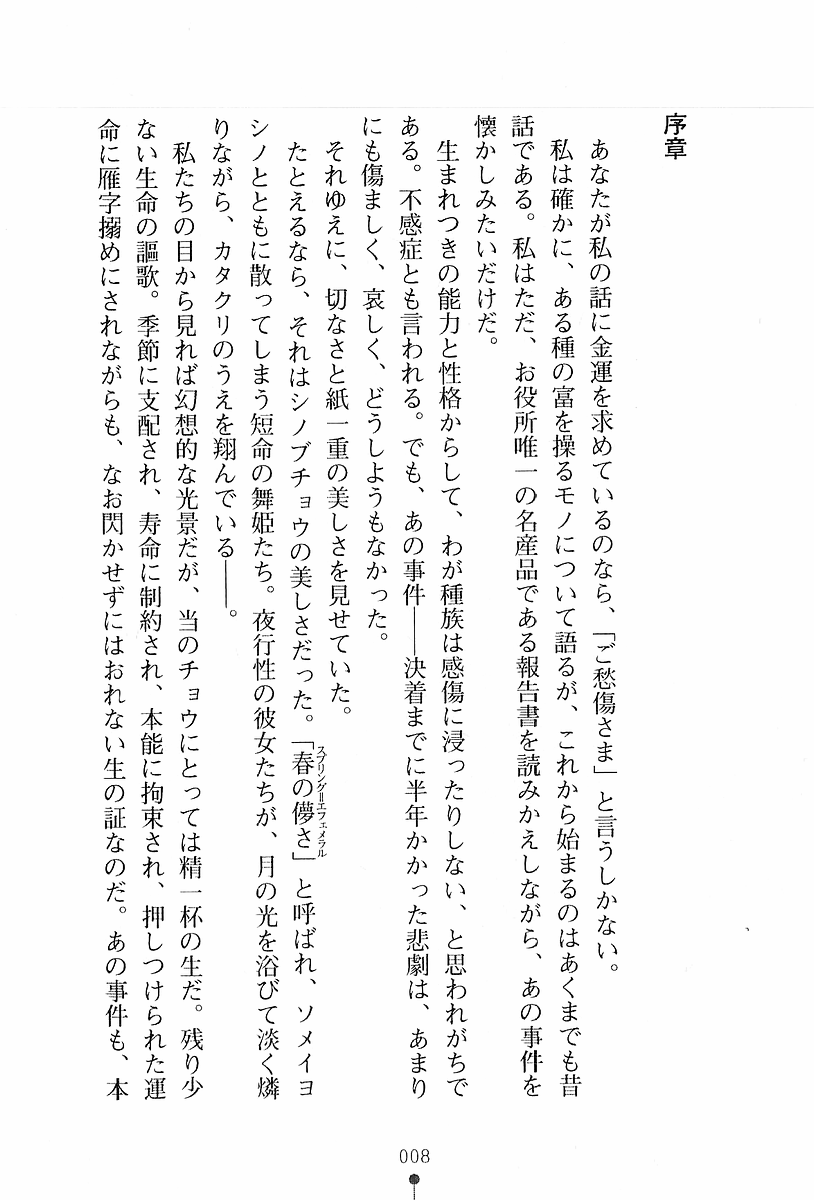 序章
あなたが私の話に金運を求めているのなら、「ご愁傷さま」と言うしかない。
私は確かに、ある種の富を操るモノについて語るが、これから始まるのはあくまでも昔
話である。私はただ、お役所唯一の名産品である報告書を読みかえしながら、あの事件を
懐かしみたいだけだ。
生まれつきの能力と性格からして、わが種族は感傷に浸ったりしない、と思われがちで
ある。不感症とも言われる。でも、あの事件――決着までに半年かかった悲劇は、あまり
にも傷ましく、哀しく、どうしようもなかった。
それゆえに、切なさと紙一重の美しさを見せていた。
たとえるなら、それはシノブチョウの美しさだった。「春の儚さ」と呼ばれ、ソメイヨ
スプリング＝エフェメラル
シノとともに散ってしまう短命の舞姫たち。夜行性の彼女たちが、月の光を浴びて淡く燐
りながら、カタクリのうえを翔んでいる――。
私たちの目から見れば幻想的な光景だが、当のチョウにとっては精一杯の生だ。残り少
ない生命の謳歌。季節に支配され、寿命に制約され、本能に拘束され、押しつけられた運
命に雁字搦めにされながらも、なお閃かせずにはおれない生の証なのだ。あの事件も、本
008